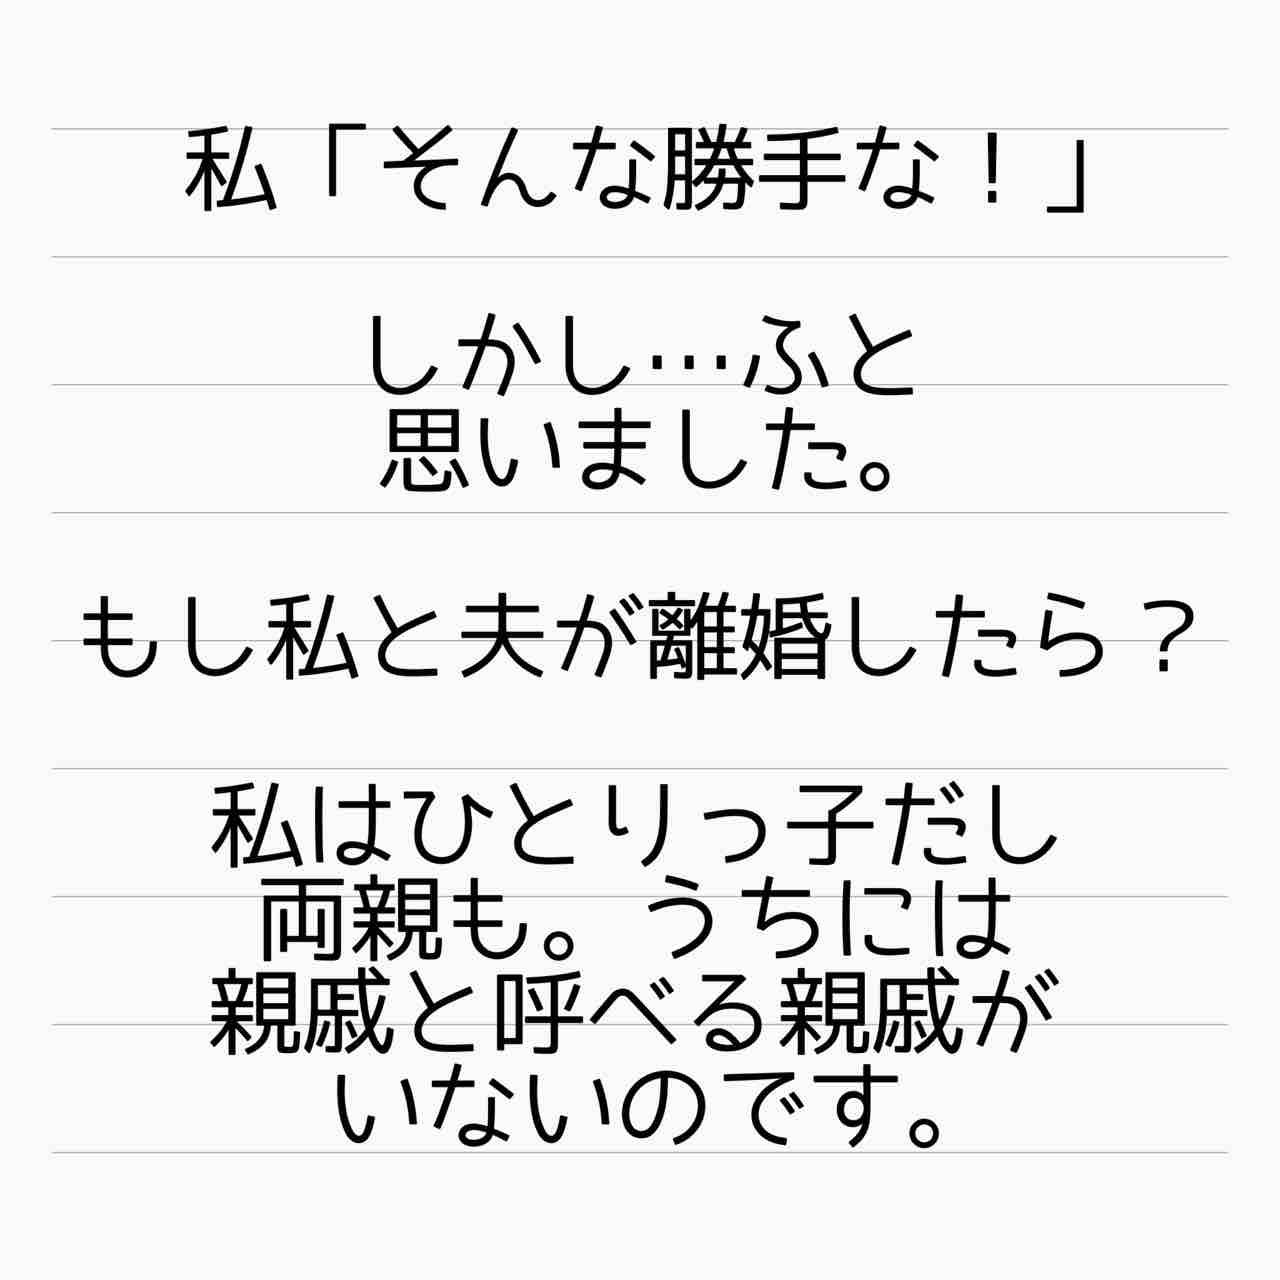 私「そんな勝手な！」
しかし…ふと
思いました。
もし私と夫が離婚したら？
私はひとりっ子だし
両親も。うちには
親戚と呼べる親戚が
いないのです。